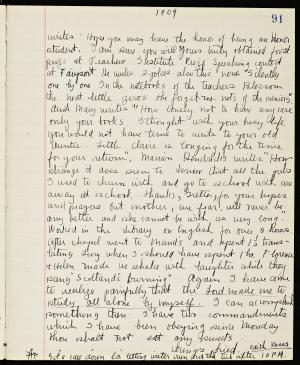 1909
91
writes "Hope you may have the honor of being an Honor
student. I am sure you will. Yours truly obtained first
prize at Teachers Institute Prize Speaking contest
at Fairport. He writes 2 jokes also this verse "Silently
one by one In the notebooks of the teachers Blossom
the neat little zeros the forget-me-nots of the seniors"
Aunt Mary writes "How lonely not a baby any more
only your books. I thought with your busy life
you would not have time to write to your old
Auntie. Little Claire is longing for the time
for your return", Marian writes "How
strange it does seem to honor that all the girls
I used to chum with and go to school with are
away at school. Thanks, for your hopes
and prayers but mother, we fear, will never be
any better and she cannot be with us very long."
Worked in the library on English for over 2 hours.
After chapel went to Maud's and spent 1½ trans-
lating Livy when I should have spent 1 hr. Florence
& Helen made me shake with laughter while they
sang Scotland's burning. Again I have come
to realize painfully that the Lord made me to
study all alone by myself. I can accomplish
something then. I have two commandments
which I have been obeying since Monday
thou shalt not eat any sweets
things fried. Edith Moses
& I sat down to letting water run did this till after 10 P.M.